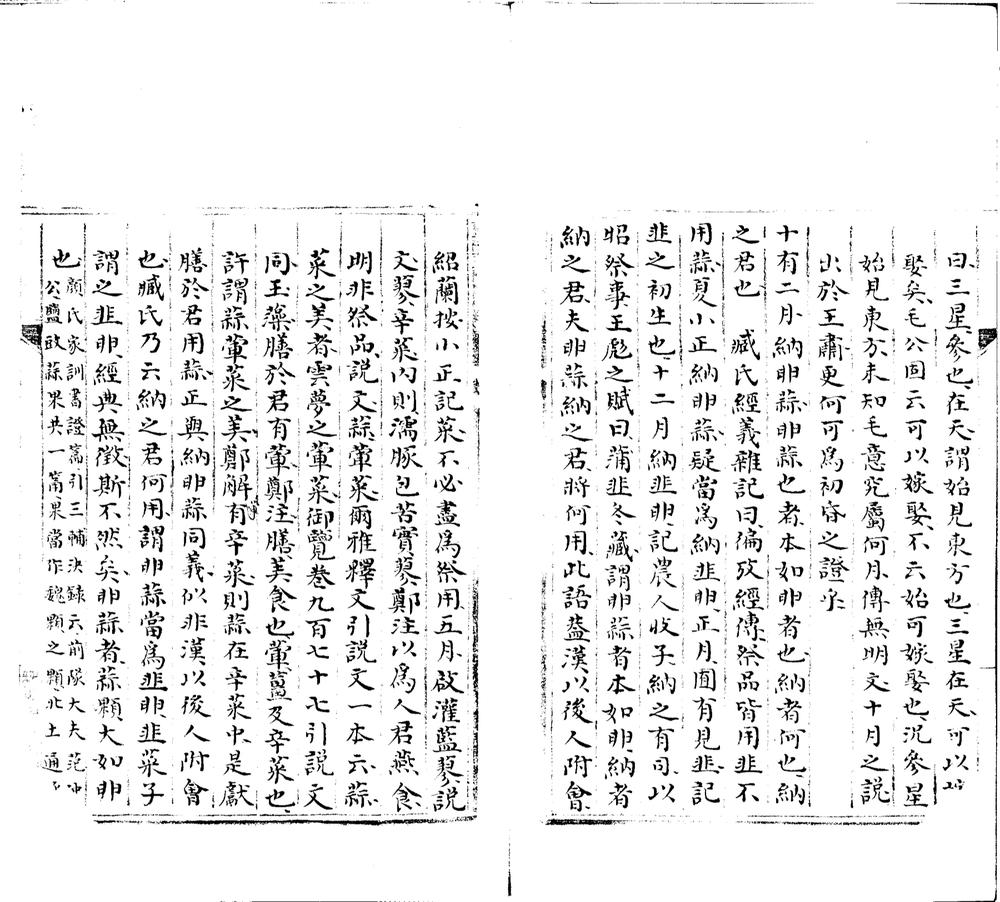 曰三星參也在天謂始見東方也三星在天可以
娶矣毛公固云可以嫁娶不云始可嫁娶也況參星
始見東方未知毛意究屬何月傳無明文十月之說
出於王肅更何可爲初昏之證乎
十有二月納卵蒜卵蒜也者本如卵者也納者何也納
之君也 臧氏經義雜記曰徧攷經傳祭品皆用韭不
用蒜夏小正納卵蒜疑當爲納韭卵正月囿有見韭記
韭之初生也十二月納韭卵記農人收子納之有司以
昭祭事王彪之賦曰蒲韭冬藏謂卵蒜者本如卵納者
納之君夫卵蒜納之君將何用此語葢漢以後人附會
紹蘭按小正記菜不必盡爲祭用五月啟灌藍蓼說
文蓼辛菜內則濡豚包苦實蓼鄭注以爲人君燕食
明非祭品說文蒜葷菜爾雅釋文引說文一本云蒜
菜之美者雲夢之葷菜御覽卷九百七十七引說文
同玉藻膳於君有葷鄭注膳美食也葷薑及辛菜也
許謂蒜葷菜之美鄭解有辛菜則蒜在辛菜中是獻
膳於君用蒜正與納卵蒜同義似非漢以後人附會
也臧氏乃云納之君何用謂卵蒜當爲韭卵韭菜子
謂之韭卵經典無徵斯不然矣卵蒜者蒜顆大如卵
也顏氏家訓書證篇引三輔決錄云前隊大夫范仲
公鹽豉蒜果共一筩果當作魏顆之顆北土通